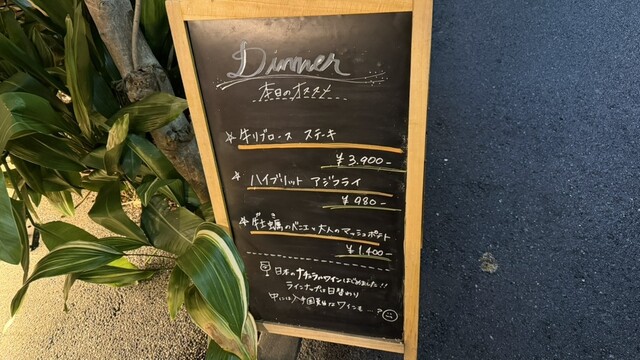 Dinner
本日のオススメ
☆ 牛リブロース ステーキ
¥3,900-
☆ ハイブリット アジフライ
¥980-
☆ 牡蠣のベニエと大人のマッシュポテト
¥1,400-
日本のナチュラルワインはじめました!!
ラインナップは日替わり
中には入手困難なワインも…?